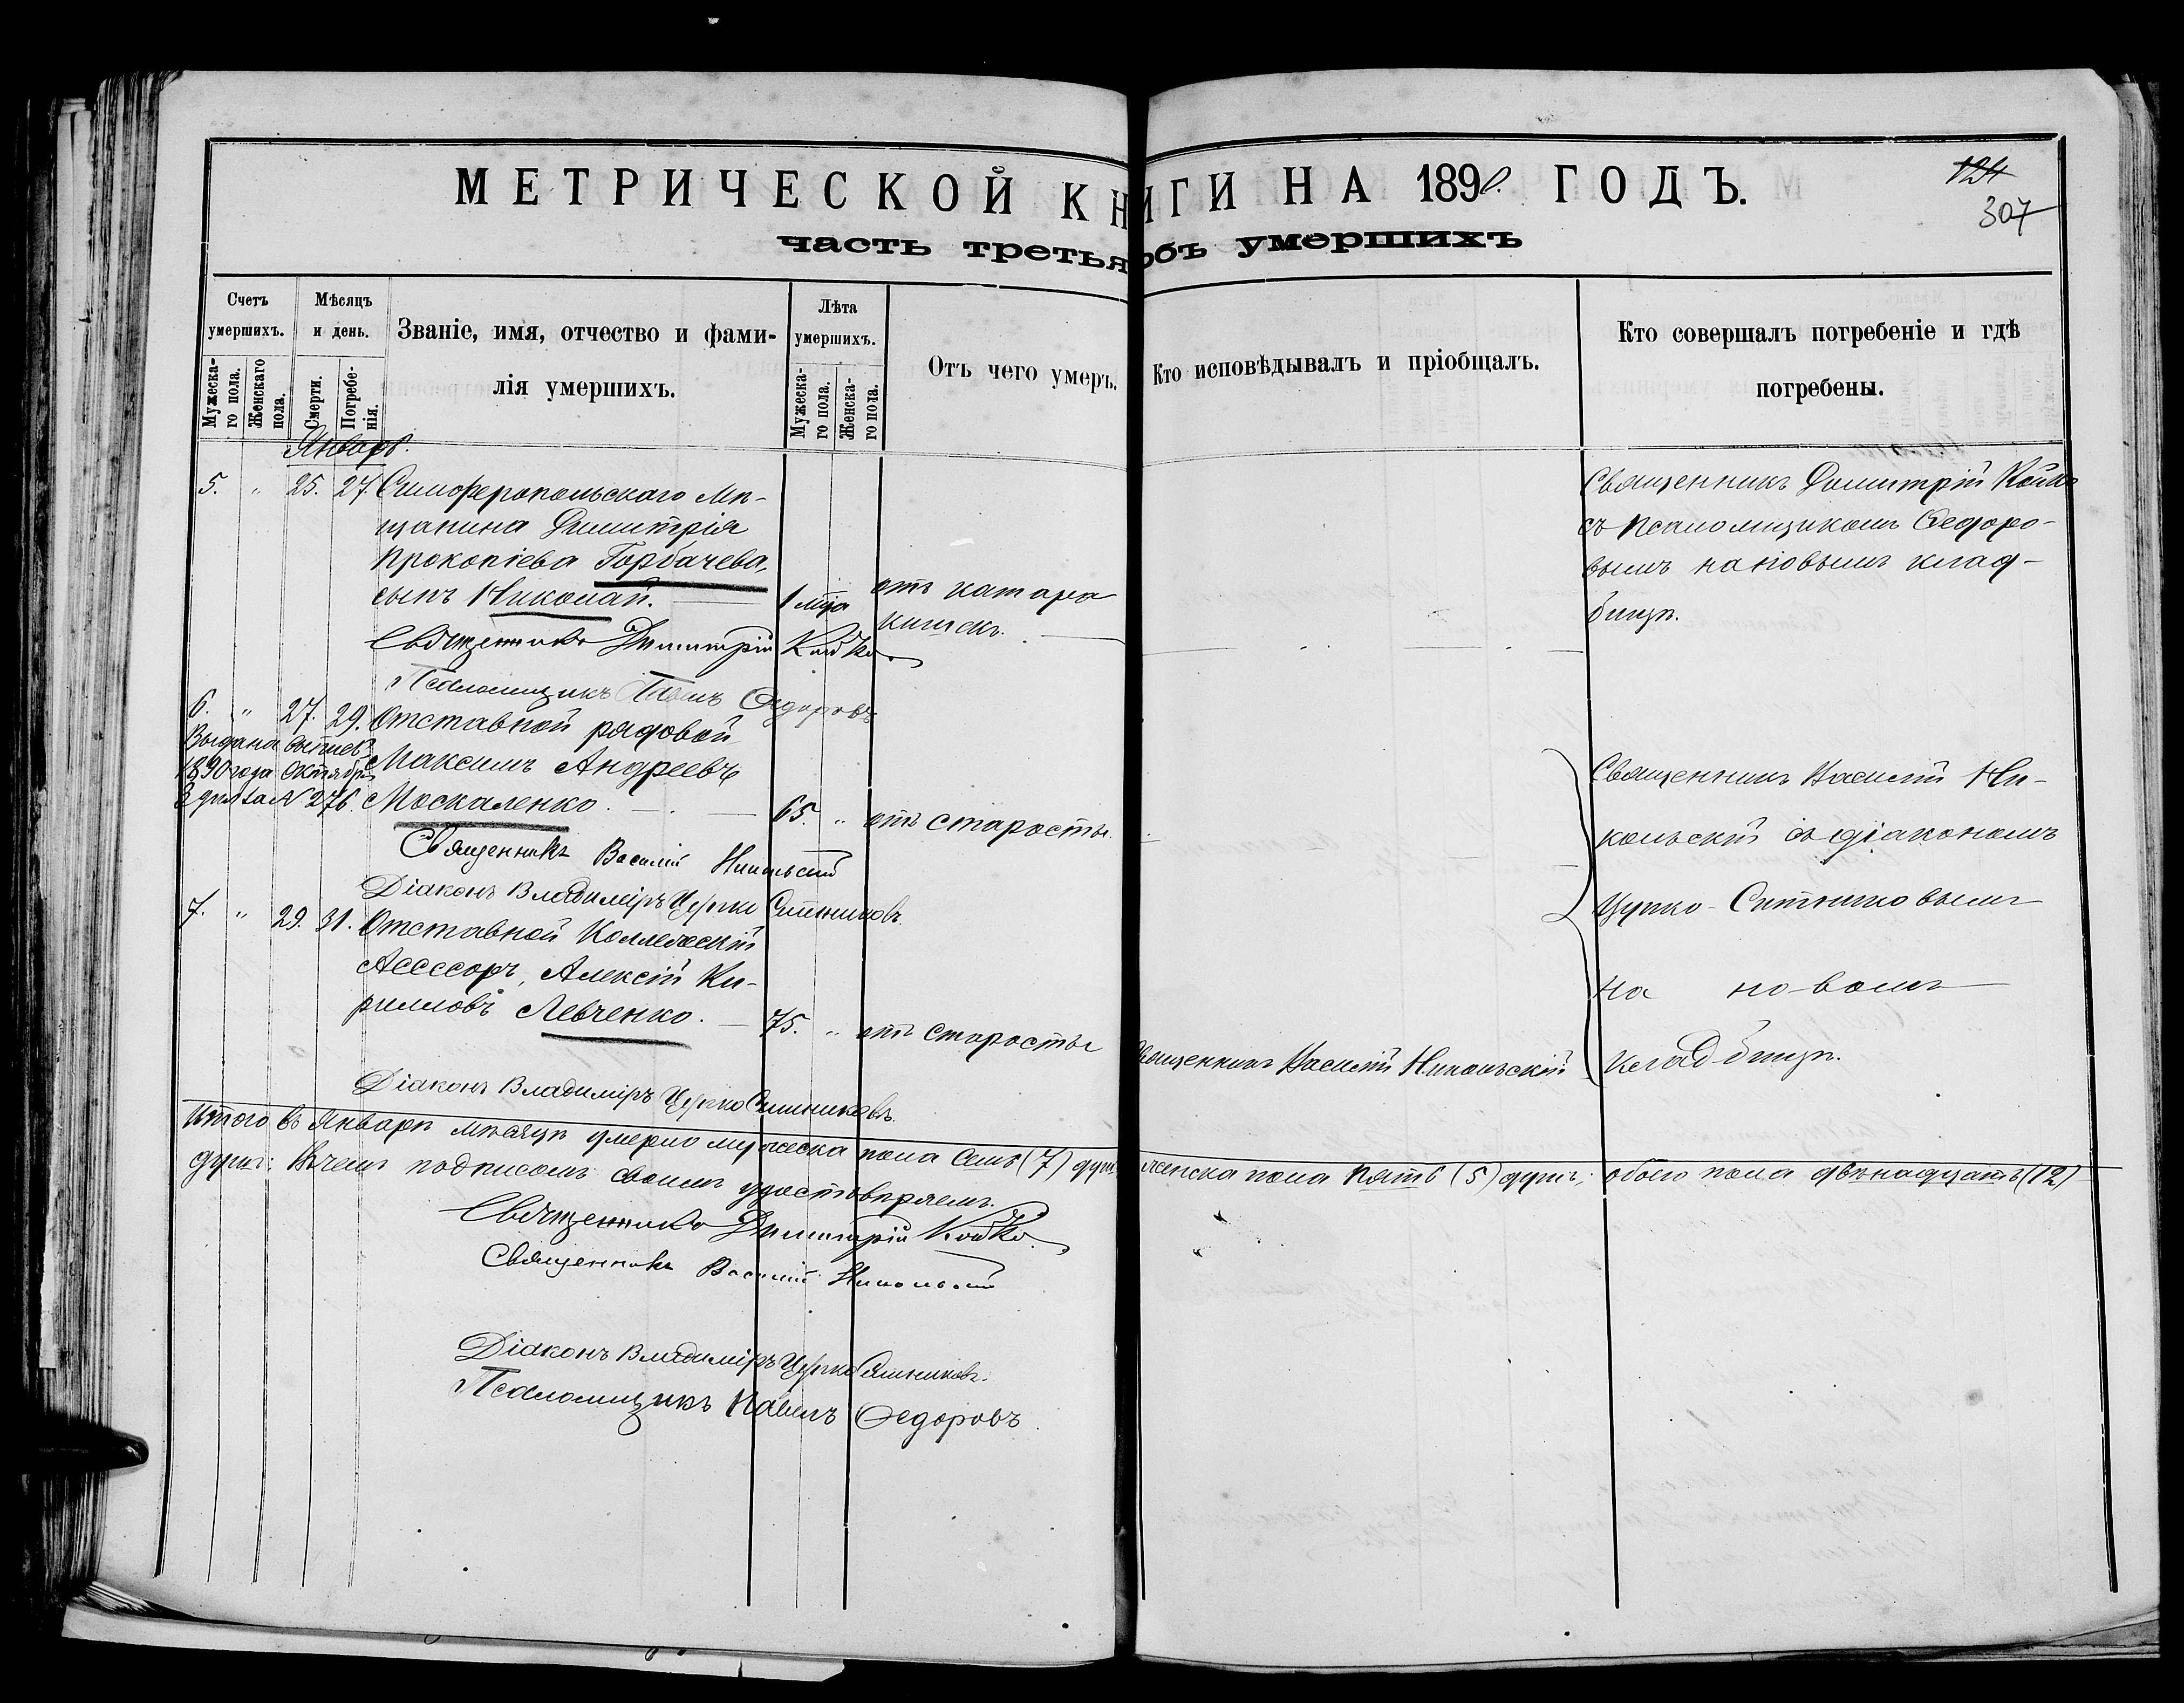 МЕТРИЧЕСКОЙ КНИГИ НА 1890. ГОДЪ.
124
307
часть третья объ умершихъ
Счетъ умершихъ.
Мужеска-го пола.
Женскаго пола.
Мѣсяцъ и день.
Смерти.
Погребе-нія.
Званіе, имя, отчество и фами-
лія умершихъ.
Лѣта умершихъ.
Мужеска-го пола.
Женска-го пола.
Отъ чего умеръ.
Кто исповѣдывалъ и пріобщалъ.
Кто совершалъ погребеніе и гдѣ
погребены.
Январь.
5. " 25. 27. Симферопольскаго Мѣ-
щанина Димитрія
Прокопіева Горбачева,
сынъ Николай. 1 мца отъ катара
кишекъ.
Священникъ Димитрій Койко
съ псаломщикомъ Ѳедоро-
вымъ на новомъ клад-
бищѣ.
Священникъ Димитрій Койко.
Псаломщикъ Павелъ Ѳедоровъ
6. " 27. 29. Отставной рядовой
Максимъ Андреевъ
Москаленко. 65. " отъ старости.
Выдана выпись
1890 года Октября
3 дня за № 276.
Священникъ Василій Ни-
кольскій съ діакономъ
Цупко-Ситниковымъ
на новомъ
кладбищѣ.
Священникъ Василій Никольскій
Діаконъ Владиміръ Цупко Ситниковъ.
7. " 29. 31. Отставной Коллежскій
Ассесоръ, Алексій Ки-
рилловъ Левченко. 75. " отъ старости Священникъ Василій Никольскій
Діаконъ Владиміръ Цупко Ситниковъ.
Итого въ Январѣ мѣсяцѣ умерло мужеска пола семь (7) душъ женска пола пять (5) душъ, обоего пола двѣнадцать (12)
душъ: въ чемъ подписомъ своимъ удостовѣряемъ.
Священникъ Димитрій Койко.
Священникъ Василій Никольскій
Діаконъ Владиміръ Цупко Ситниковъ.
Псаломщикъ Павелъ Ѳедоровъ.